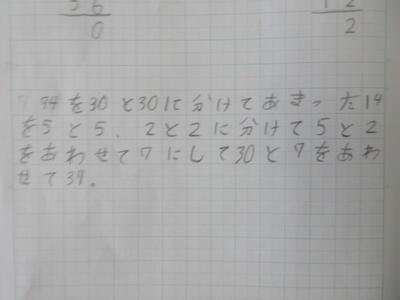 56
0
12
2
94を30と30に分けてあまった14
を5と5、2と2に分けて5と2
をあわせて7にして30と7をあわ
せて37。